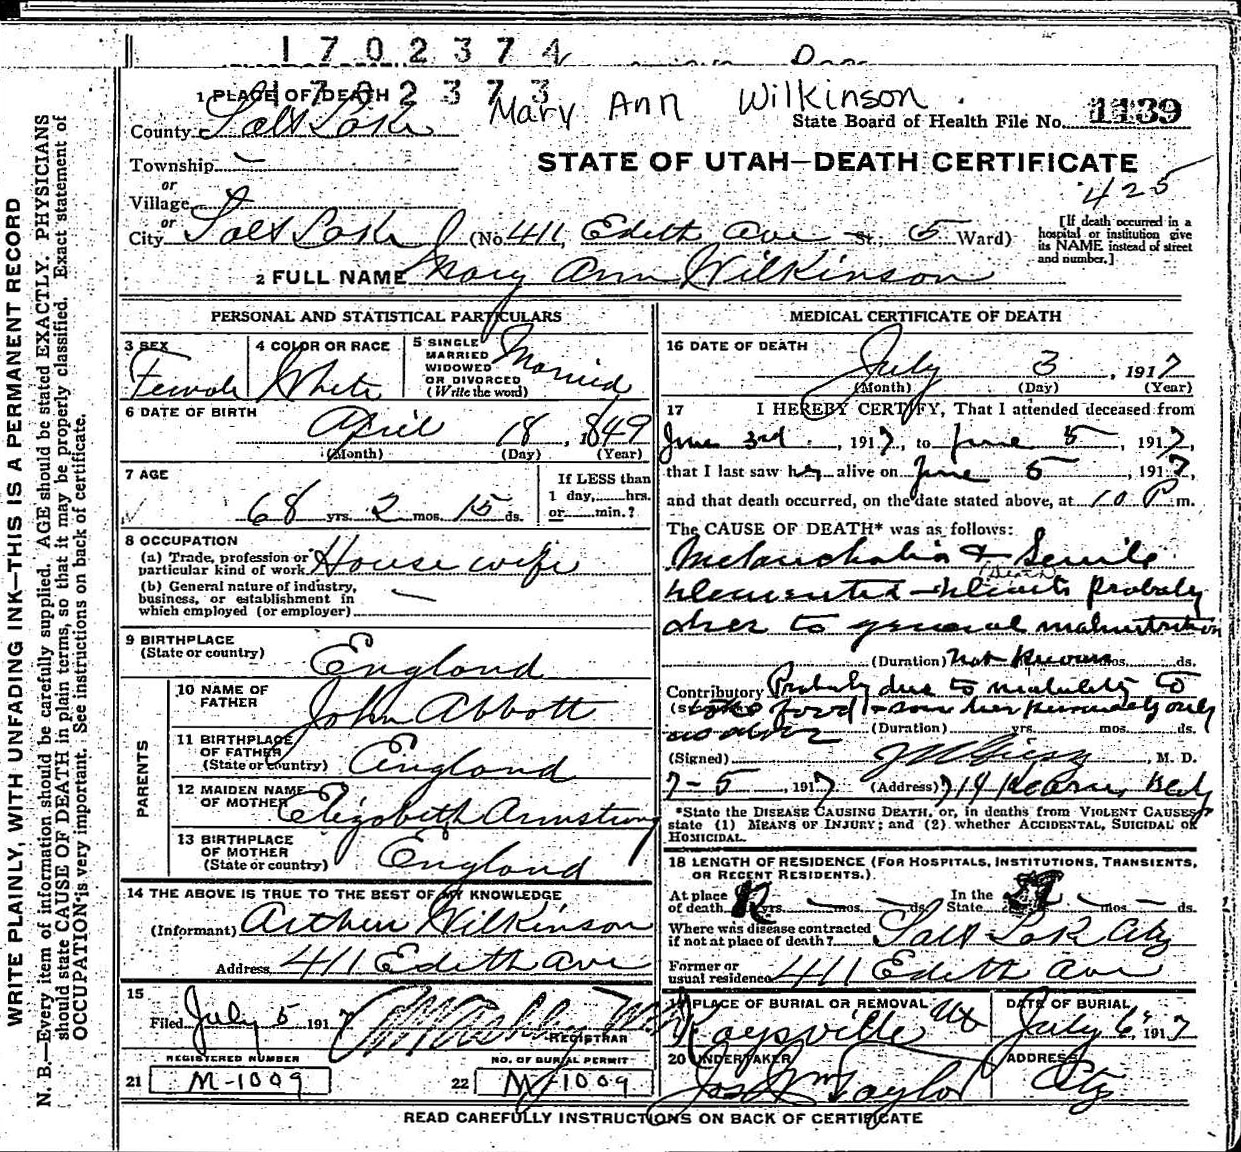 1702374
1702373
Mary Ann Wilkinson
1 PLACE OF DEATH
County Salt Lake
State Board of Health File No. 1139
Township
STATE OF UTAH—DEATH CERTIFICATE
or
425
Village
or
City Salt Lake (No. 411, Edith Ave St.; 5 Ward)
[If death occurred in a hospital or institution give its NAME instead of street and number.]
2 FULL NAME Mary Ann Wilkinson
PERSONAL AND STATISTICAL PARTICULARS
3 SEX Female
4 COLOR OR RACE White
5 SINGLE MARRIED WIDOWED OR DIVORCED (Write the word) Married
6 DATE OF BIRTH
April 18, 1849
(Month) (Day) (Year)
7 AGE
68 yrs. 2 mos. 15 ds.
If LESS than 1 day,......hrs. or......min.?
8 OCCUPATION
(a) Trade, profession or particular kind of work House wife
(b) General nature of industry, business, or establishment in which employed (or employer)
9 BIRTHPLACE
(State or country) England
PARENTS
10 NAME OF FATHER John Abbott
11 BIRTHPLACE OF FATHER (State or country) England
12 MAIDEN NAME OF MOTHER Elizabeth Armstrong
13 BIRTHPLACE OF MOTHER (State or country) England
14 THE ABOVE IS TRUE TO THE BEST OF MY KNOWLEDGE
(Informant) Arthur Wilkinson
Address 411 Edith Ave
15
Filed July 5 1917
REGISTRAR
REGISTERED NUMBER
NO. OF BURIAL PERMIT
21 M-1009
22 M-1009
MEDICAL CERTIFICATE OF DEATH
16 DATE OF DEATH
July 3, 1917
(Month) (Day) (Year)
17 I HEREBY CERTIFY, That I attended deceased from
June 3rd, 1917, to June 5, 1917,
that I last saw her alive on June 5, 1917,
and that death occurred, on the date stated above, at 10 P.m.
The CAUSE OF DEATH* was as follows:
Melancholia + Senile
probably
due to general malnutrition
(Duration) Not Known mos. ds.
Contributory Probably due to inability to
food
(Duration) yrs. mos. ds.
(Signed) , M. D.
7-5, 1917 (Address) 714 Kearns Bldg
*State the DISEASE CAUSING DEATH, or, in deaths from VIOLENT CAUSES, state (1) MEANS OF INJURY; and (2) whether ACCIDENTAL, SUICIDAL or HOMICIDAL.
18 LENGTH OF RESIDENCE (FOR HOSPITALS, INSTITUTIONS, TRANSIENTS, OR RECENT RESIDENTS.)
At place of death yrs. mos. ds. In the State mos. ds.
Where was disease contracted if not at place of death? Salt Lake City
Former or usual residence 411 Edith Ave
19 PLACE OF BURIAL OR REMOVAL Kaysville Ut
DATE OF BURIAL July 6, 1917
20 UNDERTAKER Jos Wm Taylor
ADDRESS City
READ CAREFULLY INSTRUCTIONS ON BACK OF CERTIFICATE
WRITE PLAINLY, WITH UNFADING INK—THIS IS A PERMANENT RECORD
N. B.—Every item of information should be carefully supplied. AGE should be stated EXACTLY. PHYSICIANS
should state CAUSE OF DEATH in plain terms, so that it may be properly classified. Exact statement of
OCCUPATION is very important. See instructions on back of certificate.